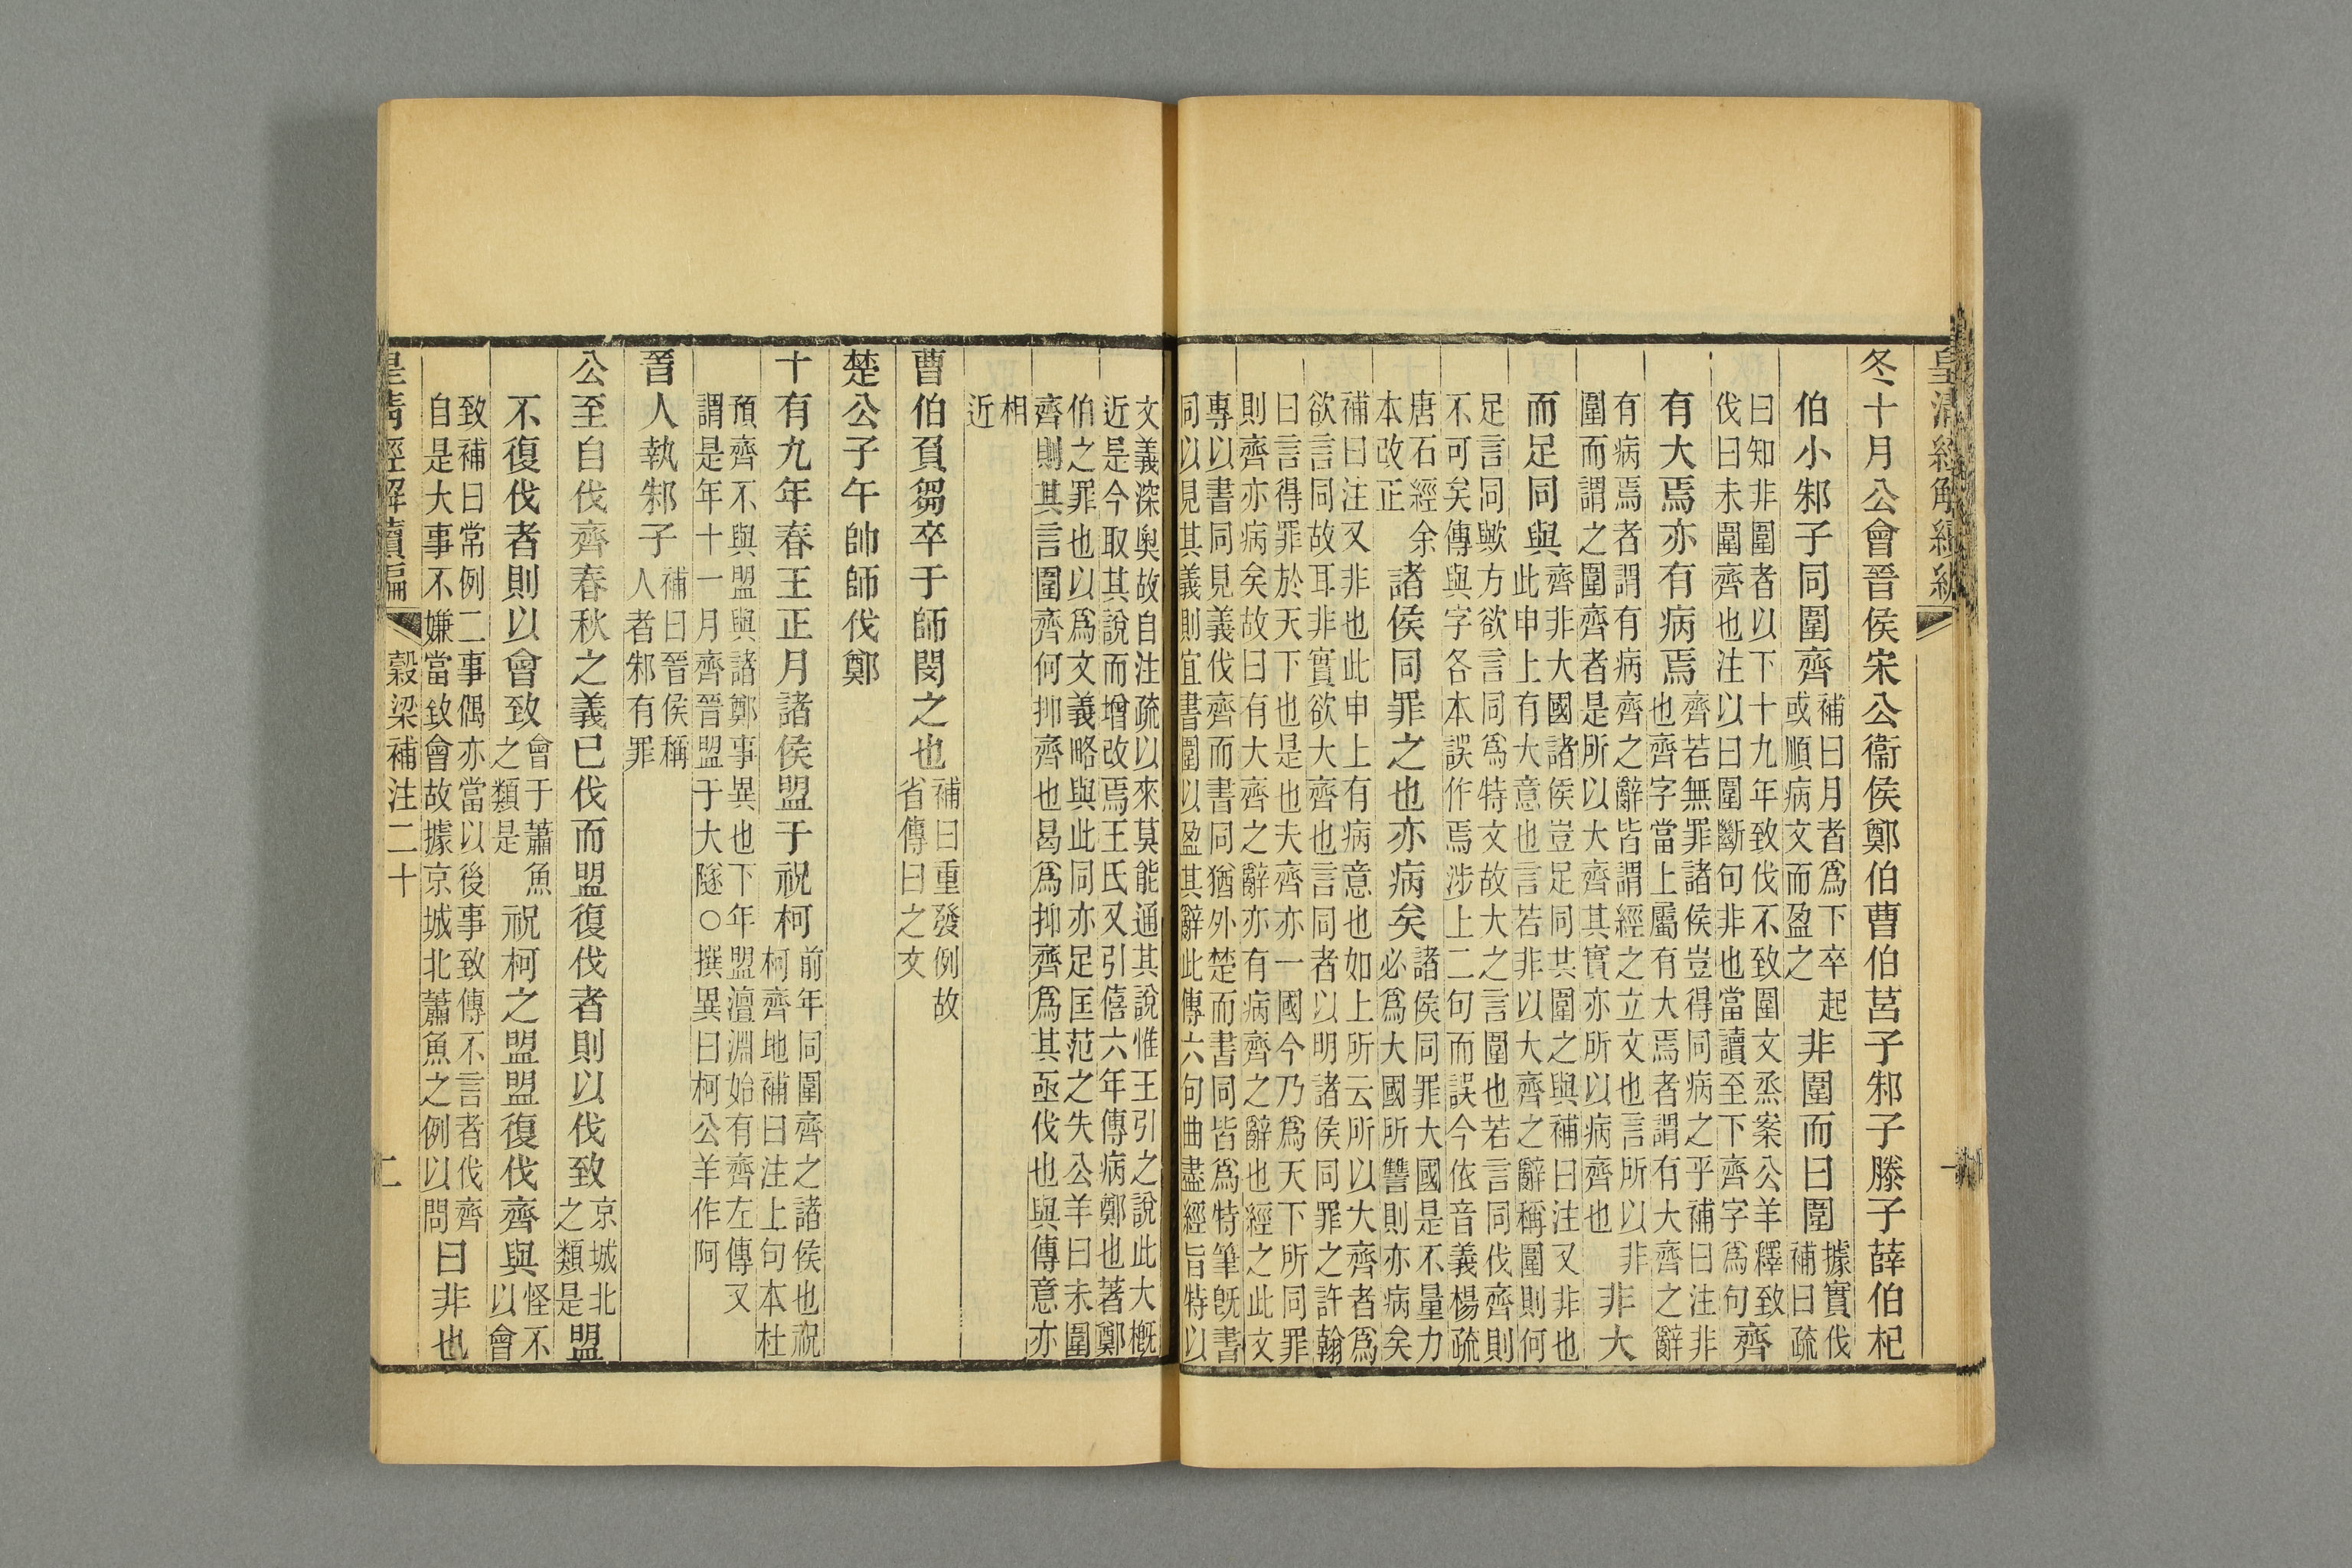 皇清經解續編
冬十月公會晉侯宋公衞侯鄭伯曹伯莒子邾子滕子薛伯杞
伯小邾子同圍齊補曰月者爲下卒起或順病文而盈之非圍而曰圍據實伐補曰疏
曰知非圍者以下十九年致伐不致圍文烝案公羊釋致伐曰未圍齊也注以曰圍斷句非也當讀至下齊字爲句齊
有大焉亦有病焉齊若無罪諸侯豈得同病之乎補曰注非也齊字當上屬有大焉者謂有大齊之辭
有病焉者謂有病齊之辭皆謂經之立文也言所以非圍而謂之圍齊者是所以大齊其實亦所以病齊也非大
而足同與齊非大國諸侯豈足同共圍之與補曰注又非也此申上有大意也言若非以大齊之辭稱圍則何
足言同歟方欲言同爲特文故大之言圍也若言同伐齊則不可矣傳與字各本誤作焉涉上二句而誤今依音義楊疏
唐石經余本改正諸侯同罪之也亦病矣諸侯同罪大國是不量力必爲大國所讐則亦病矣
補曰注又非也此申上有病意也如上所云所以大齊者爲欲言同故耳非實欲大齊也言同者以明諸侯同罪之許翰
曰言得罪於天下也是也夫齊亦一國今乃爲天下所同罪則齊亦病矣故曰有大齊之辭亦有病齊之辭也經之此文
專以書同見義伐齊而書同猶外楚而書同皆爲特筆旣書同以見其義則宜書圍以盈其辭此傳六句曲盡經旨特以
文義深奧故自注疏以來莫能通其說惟王引之說此大概近是今取其說而增改焉王氏又引僖六年傳病鄭也著鄭
伯之罪也以爲文義略與此同亦足匡范之失公羊曰未圍齊則其言圍齊何抑齊也曷爲抑齊爲其亟伐也與傳意亦
相近
曹伯負芻卒于師閔之也補曰重發例故省傳曰之文
楚公子午帥師伐鄭
十有九年春王正月諸侯盟于祝柯前年同圍齊之諸侯也祝柯齊地補曰注上句本杜
預齊不與盟與諸鄭事異也下年盟澶淵始有齊左傳又謂是年十一月齊晉盟于大隧○撰異曰柯公羊作阿
晉人執邾子補曰晉侯稱人者邾有罪
公至自伐齊春秋之義已伐而盟復伐者則以伐致京城北之類是盟
不復伐者則以會致會于蕭魚之類是祝柯之盟盟復伐齊與怪不以會
致補曰常例二事偶亦當以後事致傳不言者伐齊自是大事不嫌當致會故據京城北蕭魚之例以問曰非也
皇清經解續編 穀梁補注二十 二